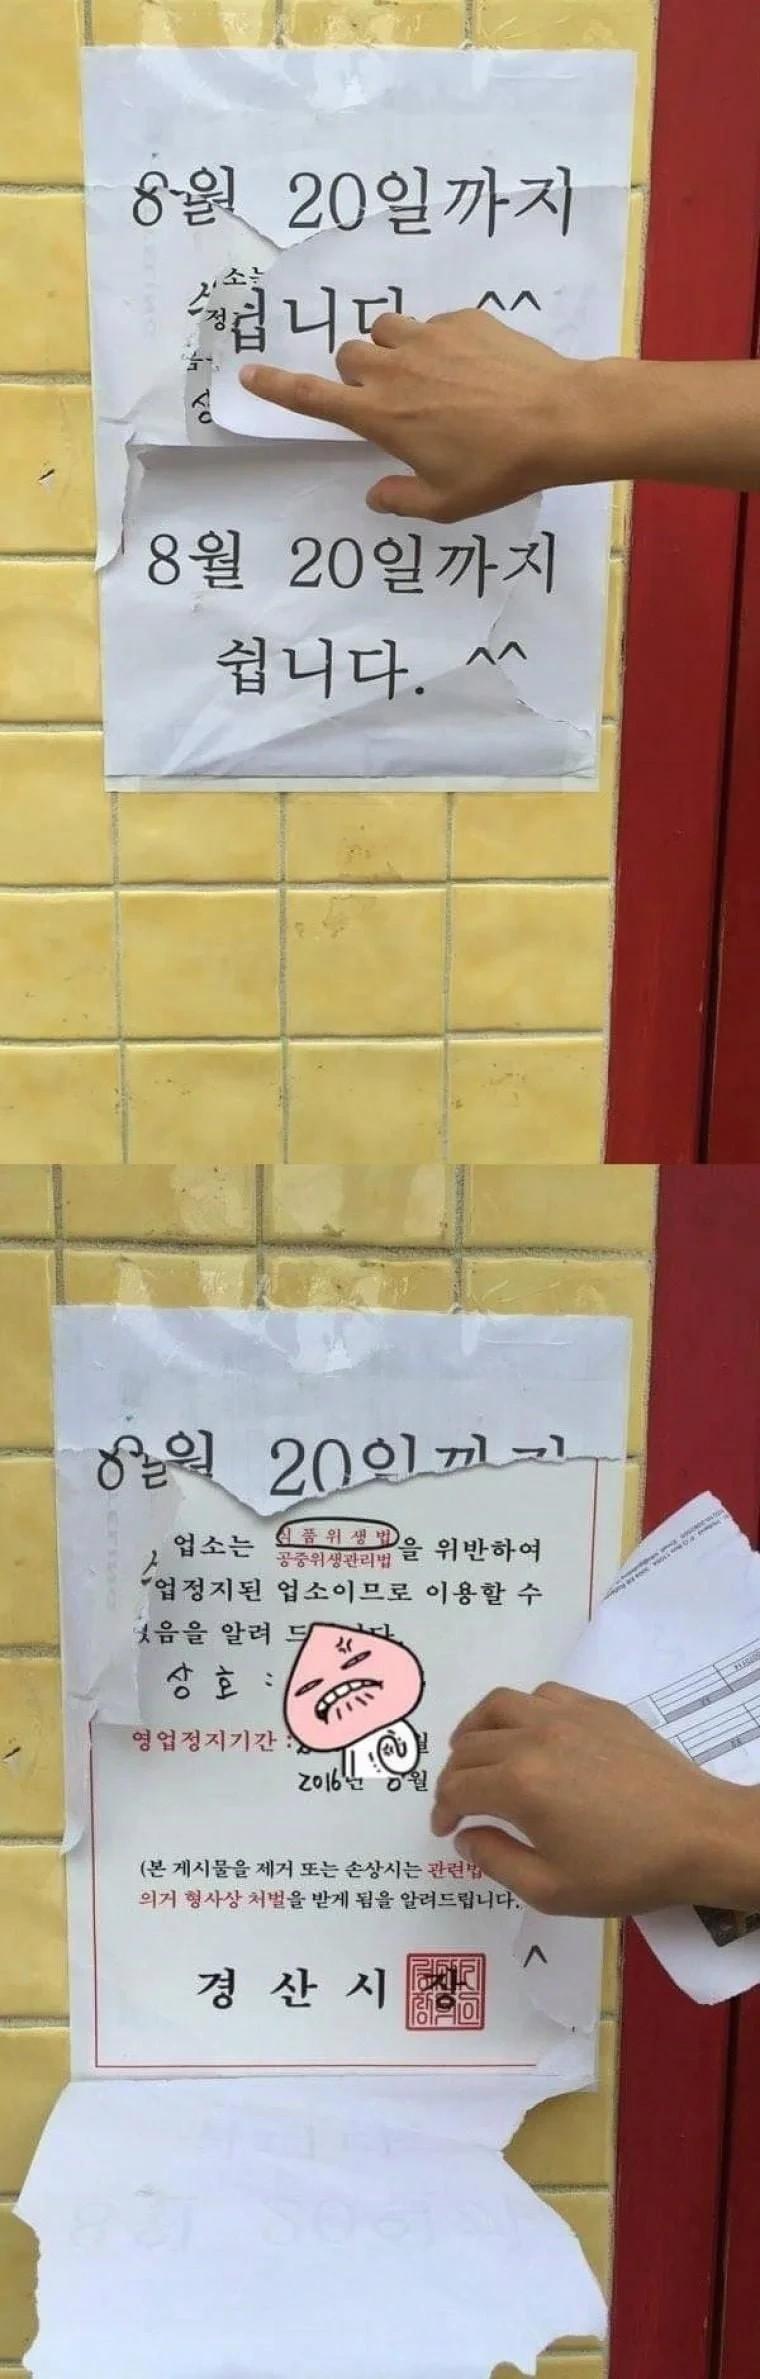 8월 20일까지
소는
정
쉽니다. ^^
상
8월 20일까지
쉽니다. ^^
8월 20일까지
업소는 식품위생법
공중위생관리법 을 위반하여
업정지된 업소이므로 이용할 수
없음을 알려 드
상 호 :
영업정지기간 :
2016년 8월
(본 게시물을 제거 또는 손상시는 관련법
의거 형사상 처벌을 받게 됨을 알려드립니다.
^
경 산 시 장